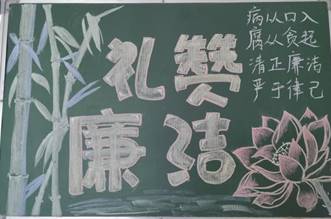 礼赞
廉洁
病从口入
腐从食起
清正廉洁
严于律己